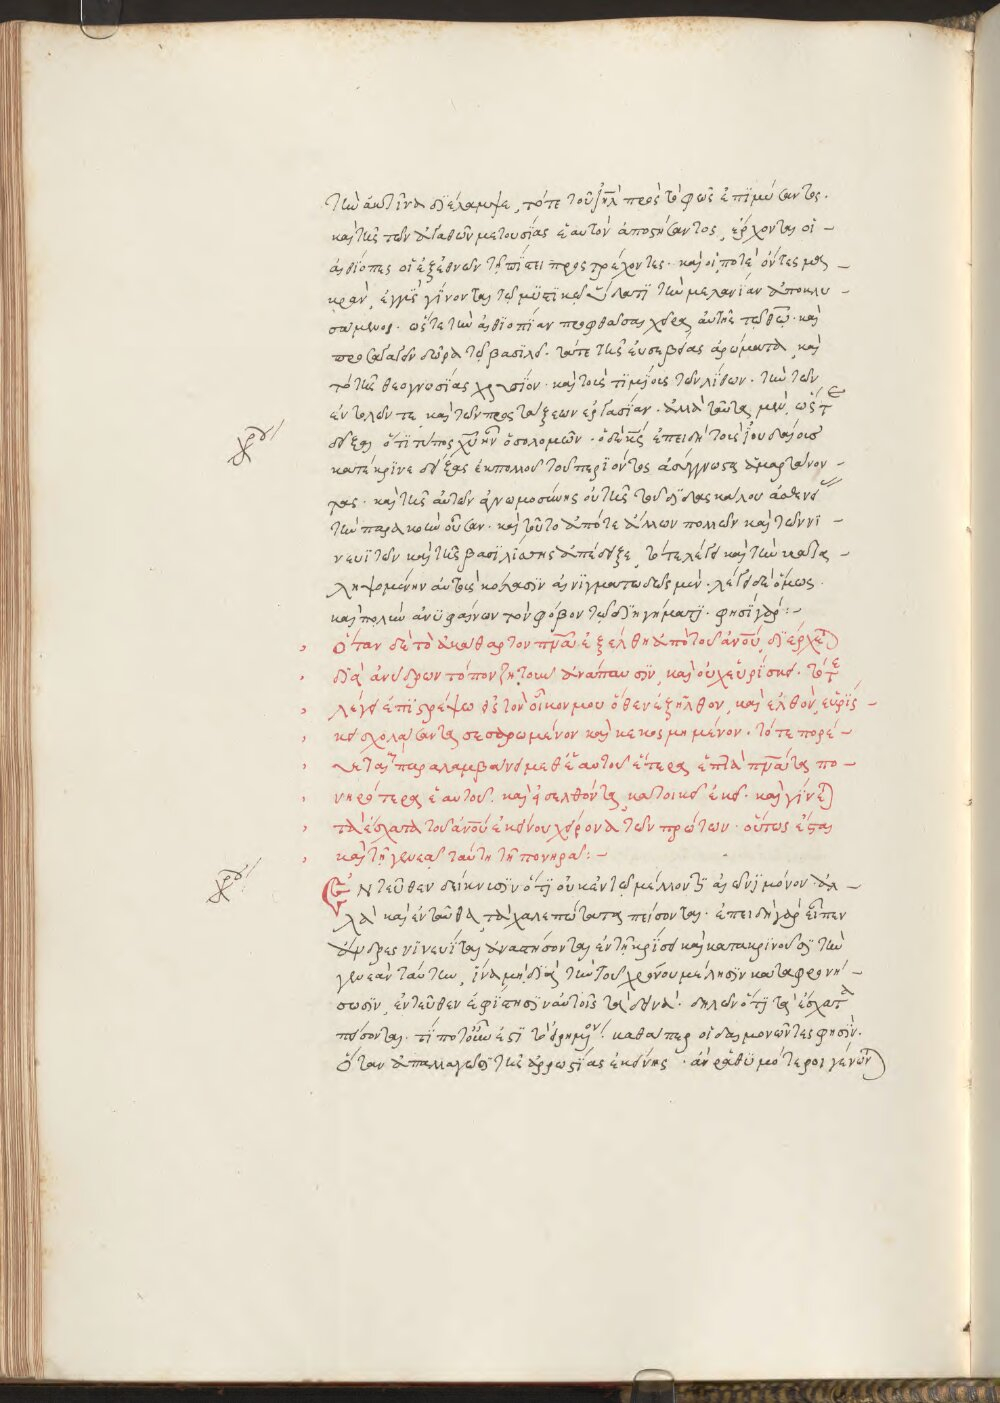 τὴν ἀκτῖνα διέλαμψε, τότε τοῦ ἰηλ πρὸς τὸ φῶς ἐπιμύσαντος.
καὶ τῆς τῶν ἀγαθῶν μετουσίας ἑαυτὸν ἀποστήσαντος, ἔρχονται οἱ –
αἰθίοπες οἱ ἐξ ἐθνῶν τῇ πίστει προστρέχοντες. καὶ οἱ ποτὲ ὄντες μα –
κρὰν, ἐγγὺς γίνονται τῷ μυστικῷ ὕδατι τὴν μελανίαν ἀποκλυ –
σάμενοι. ὥστε τὴν αἰθιοπίαν προφθάσαι χεῖρα αὐτῆς τῷ θῶ. καὶ
προσάξαι δῶρα τῷ βασιλεῖ. τά τε τῆς εὐσεβείας ἀρώματα, καὶ
τὸ τῆς θεογνωσίας χρυσίον. καὶ τοὺς τιμίους τῶν λίθων. τὴν τῶν
ἐντολῶν τε καὶ τῶν προσταξεων ἐργασίαν. ἀλλὰ ταῦτα μὲν, ὥστε
δεῖξαι ὅτι τύπος χυ ἦν ὁ σολομῶν. ὁ δὲ κς ἐπειδὴ τοὺς ἰουδαίους
χρυ
κατέκρινε δείξας ἐκ πολλοῦ τοῦ περιόντος ἀσύγγνωστα ἁμαρτάνον –
τας. καὶ τῆς αὐτῶν ἀγνωμοσύνης οὐ τῆς τοῦ διδασκάλου ἀσθενείας
τὴν παρακοὴν οὖσαν. καὶ τοῦτο ἀπό τε ἄλλων πολλῶν καὶ τῶν νι –
νευϊτῶν καὶ τῆς βασιλίσσης ἀπέδειξε, τότε λέγει καὶ τὴν κατα –
ληψομένην αὐτοὺς κόλασιν αἰνιγματωδῶς μὲν. λέγει δὲ ὅμως.
καὶ πολὺν ἀνυφαίνων τὸν φόβον τῷ διηγήματι. φησὶ γάρ: –
Ὅταν δὲ τὸ ἀκάθαρτον πνα ἐξέλθῃ ἀπὸ τοῦ ἀνου, διέρχεται
δι' ἀνύδρων τόπον ζητοῦν ἀνάπαυσιν, καὶ οὐχ εὑρίσκει. τότε
λέγει ἐπιστρέψω εἰς τὸν οἶκον μου ὅθεν ἐξῆλθον, καὶ ἐλθὸν, εὑρίς –
κει σχολάζοντα σεσαρωμένον καὶ κεκοσμημένον. τότε πορεύ –
εται παραλαμβάνει μεθ' ἑαυτοῦ ἕτερα ἑπτὰ πνατα πο –
νηρότερα ἑαυτοῦ. καὶ εἰσελθόντα κατοικεῖ ἐκεῖ. καὶ γίνεται
τὰ ἔσχατα τοῦ ἀνου ἐκείνου χείρονα τῶν πρώτων. οὕτως ἔσται
καὶ τῇ γενεᾷ ταύτῃ τῇ πονηρᾷ: –
χρυ
Ἐντεῦθεν δείκνυσιν ὅτι οὐκ ἐν τῷ μέλλοντι αἰῶνι μόνον. ἀλ –
λὰ καὶ ἐνταῦθα, τὰ χαλεπώτατα πείσονται. ἐπειδὴ γὰρ εἶπεν
ἄνδρες νινευῖται ἀναστήσονται ἐν τῇ κρίσει καὶ κατακρινοῦσι τὴν
γενεὰν ταύτην, ἵνα μὴ διὰ τὴν τοῦ χρόνου μέλλησιν καταφρονή –
σωσιν, ἐντεῦθεν ἐφίστησιν αὐτοῖς τὰ δεινά. δηλῶν ὅτι τὰ ἔσχατα
πείσονται. τί ποτοῦν ἐστι τὸ εἰρημένον; καθάπερ οἱ δαιμονῶντες φησὶν.
Ὅταν ἀπαλλαγῶσι τῆς ἀρρωστίας ἐκείνης. ἂν ῥαθυμότεροι γένωνται